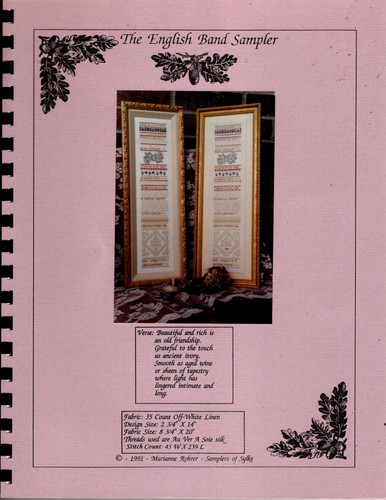 The English Band Sampler
Verse: Beautiful and rich is
an old friendship.
Grateful to the touch
as ancient ivory.
Smooth as aged wine
or sheen of tapestry
where light has
lingered intimate and
long.
Fabric: 35 Count Off-White Linen
Design Size: 2 3/4" X 14"
Fabric Size: 8 3/4" X 20"
Threads used are Au Ver A Soie silk
Stitch Count: 45 W X 239 L
© - 1991 - Marianne Rohrer - Samplers of Sylke